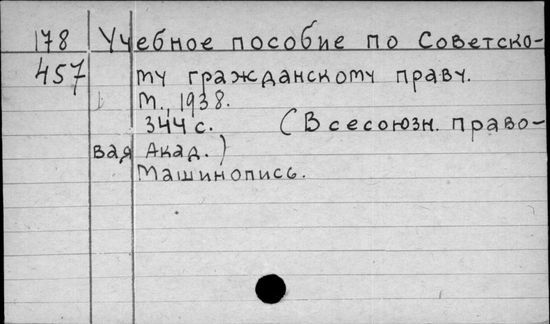 178 Учебное пособие по Советско-
457 му гражданскому праву.
М., 1938.
344 с. (Всесоюзн. право-
вая Акад.)
Машинопись.